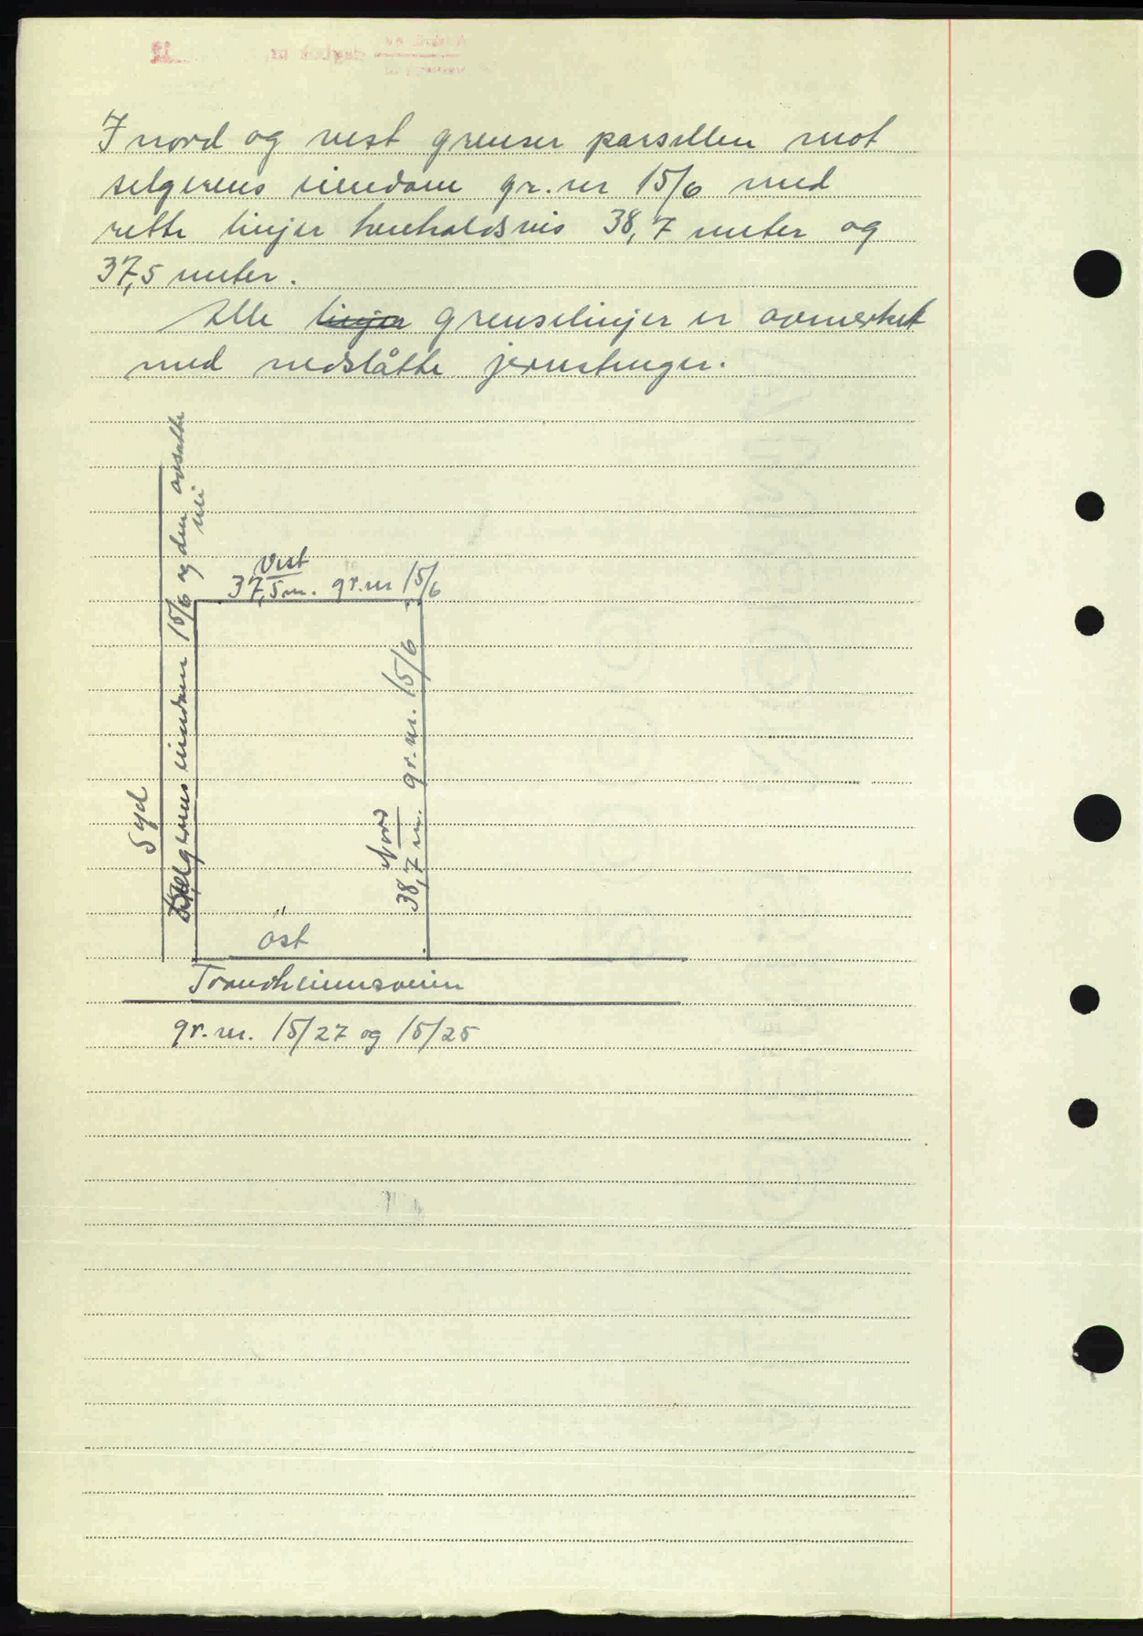 I nord og vest grenser parsellen mot
selgerens eiendom gr.nr 15/6 med
rette linjer henholdsvis 38,7 meter og
37,5 meter.
Alle linjer grenselinjer er avmerket
med nedslåtte jernstenger.
Syd
Selgerens eiendom 15/6 og den avsatte
vei
Vest
37,5 m. gr.nr 15/6
Nord
38,7 m. gr.nr. 15/6
öst
Trondheimsveien
gr.nr. 15/27 og 15/25